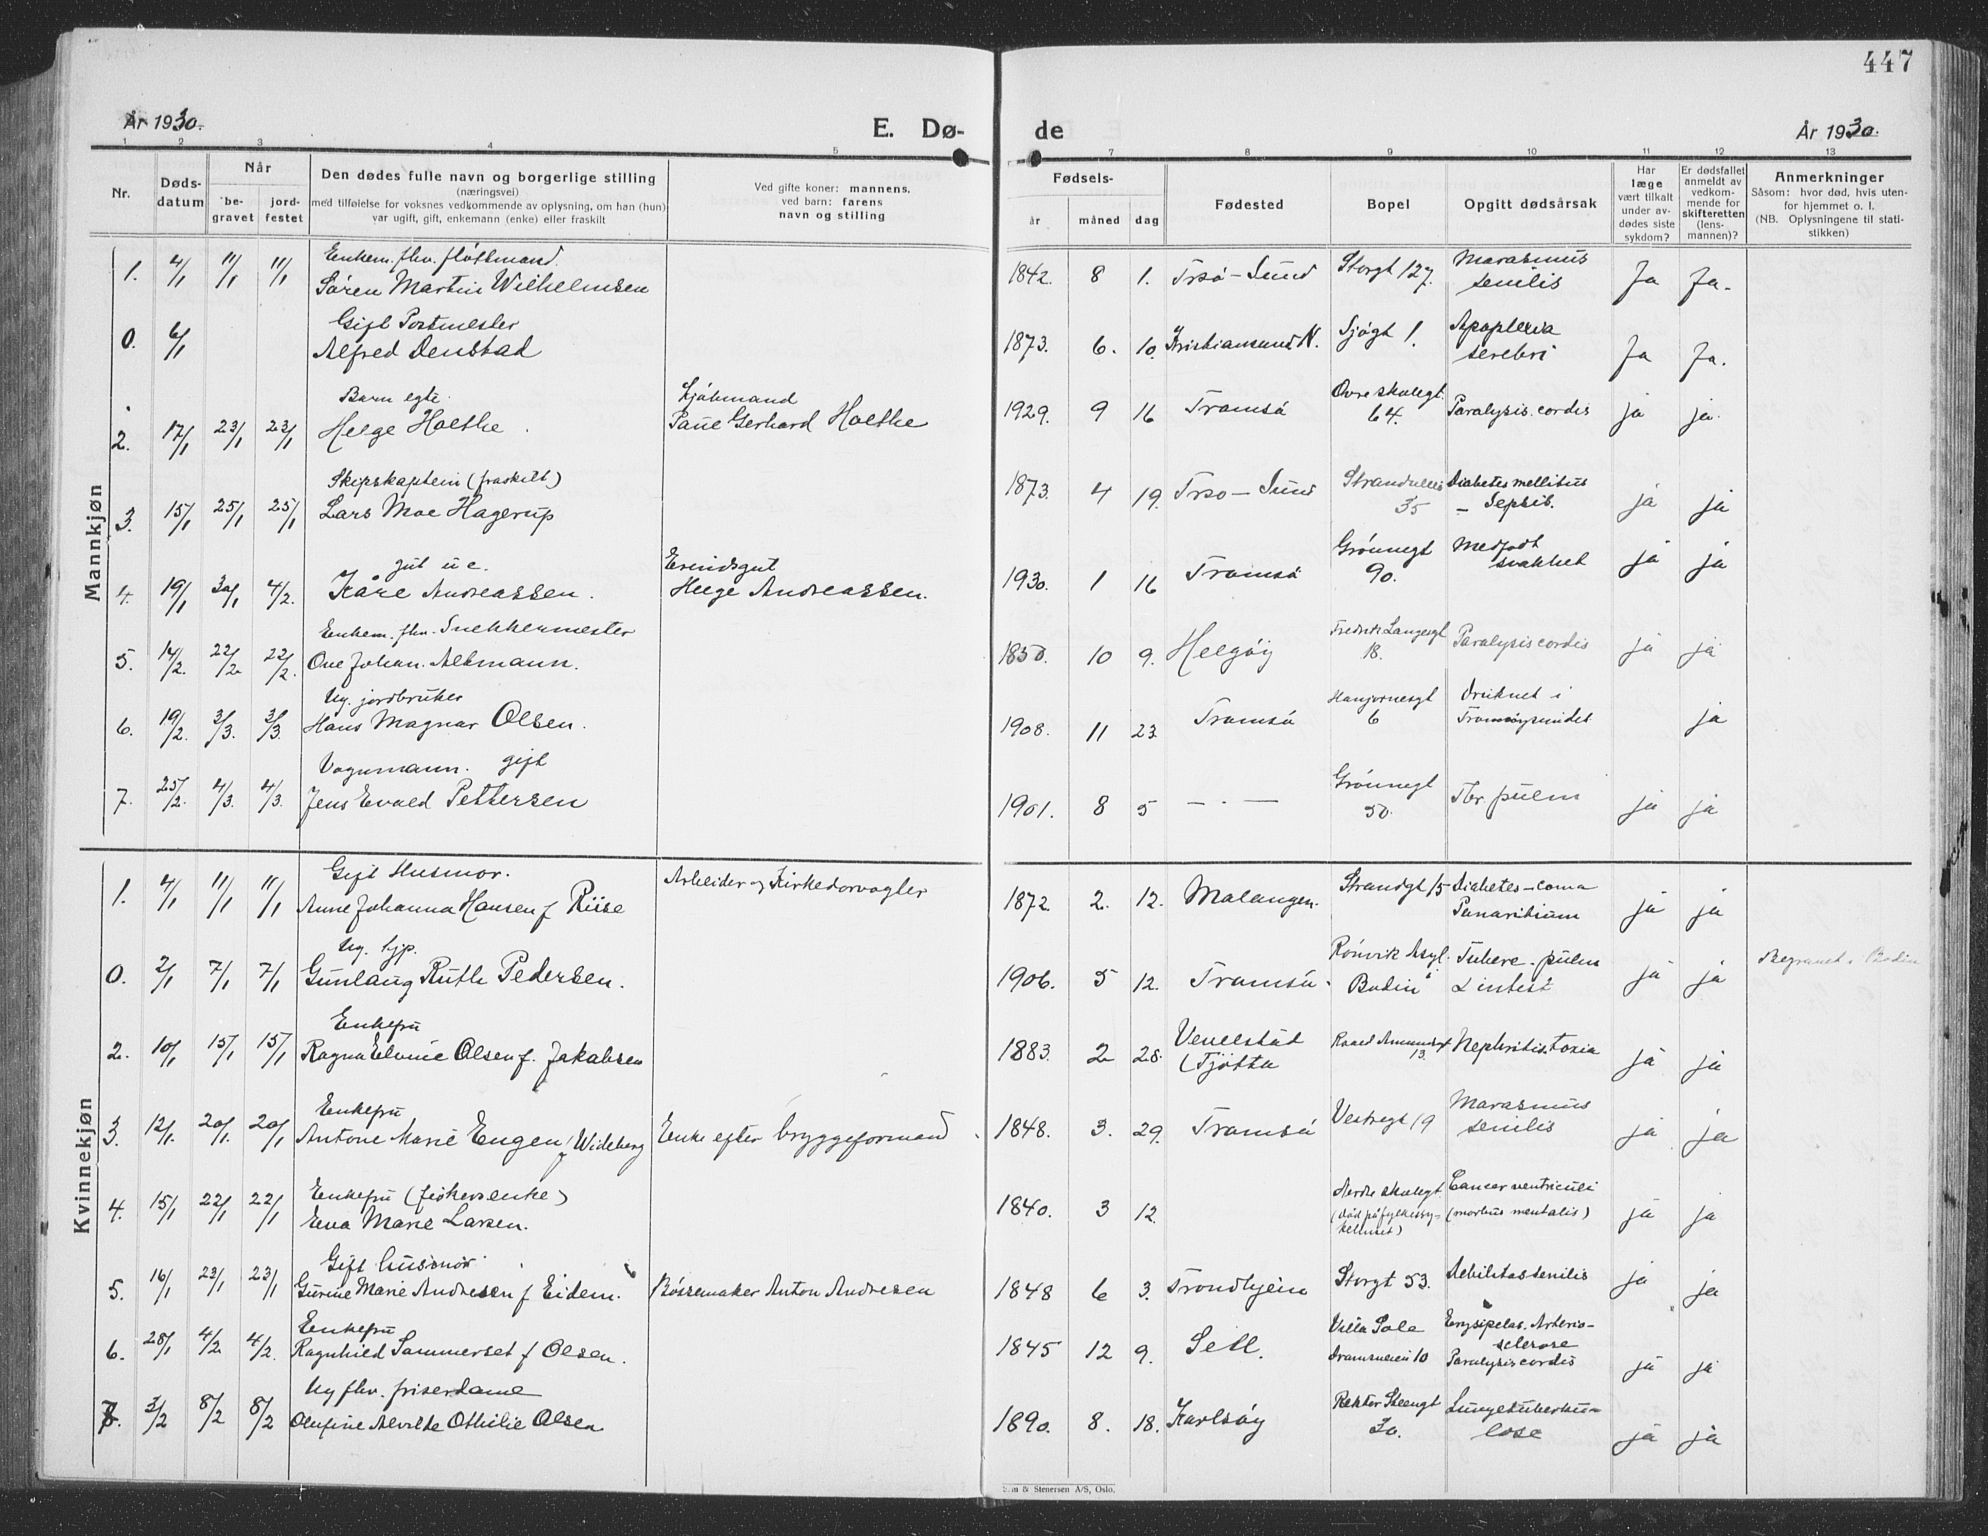 447
År 1930.
E. Dø-
de
År 1930.
1 2 3 4 5 7 8 9 10 11 12 13
Nr.
Døds-
datum
Når
be-
gravet
jord-
festet
Den dødes fulle navn og borgerlige stilling
(næringsvei)
med tilføielse for voksnes vedkommende av oplysning, om han (hun)
var ugift, gift, enkemann (enke) eller fraskilt
Ved gifte koner: mannens,
ved barn: farens
navn og stilling
Fødsels-
år måned dag
Fødested
Bopel
Opgitt dødsårsak
Har
læge
vært tilkalt
under av-
dødes siste
sykdom?
Er dødsfallet
anmeldt av
vedkom-
mende for
skifteretten
(lens-
mannen)?
Anmerkninger
Såsom: hvor død, hvis uten-
for hjemmet o. l.
(NB. Oplysningene til stati-
stikken)
Mannkjøn
Enkem. fhv. fløttmand.
1. 4/1 11/1 11/1 Søren Martin Wilhelmsen 1842. 8 1. Trsø-Sund Storgt 127. Marasmus
senilis Ja Ja.
Gift Postmester
0. 6/1 Alfred Denstad 1873. 6. 10. Kristiansund N. Sjøgt 1. Apoplexia
serebri Ja Ja.
Barn egte. Kjøbmand
2. 17/1 23/1 23/1 Helge Holthe. Paul Gerhard Holthe 1929. 9 16 Tromsø Øvre skolegt.
64. Paralysis cordis ja ja.
Skipskaptein (fraskilt)
3. 15/1 25/1 25/1 Lars Moe Hagerup 1873. 4 19. Trsø-Sund Strandveien
35 Diabetes mellitus
- Sepsis. ja ja
gut u e. Erindsgut
4. 19/1 30/1 4/2. Kåre Andreassen. Helge Andreassen. 1930. 1 16 Tromsø Grønnegt
90. Medfødt
svakhet ja ja
Enkem. fhv. Snekkermester
5. 14/2. 22/2 22/2. Ove Johan. Altmann. 1850. 10 9. Helgøy Fredrik Langesgt
18. Paralysis cordis ja ja
Ug. jordbruker
6. 19/2. 3/3. 3/3. Hans Magnar Olsen. 1908. 11 23 Tromsø 6 Druknet i
Tromsøysundet ja
Vognmann. gift
7. 25/2. 4/3. 4/3. Jens Evald Pettersen 1901. 8 5 - . - Grønnegt
50. Tbr. pulm ja ja
Kvinnekjøn
Gift Husmor.
1. 4/1 11/1 11/1 Anne Johanna Hansen f Riise Arbeider og Kirkedorvogter 1872. 2. 12. Malangen. Strandgt 15 Diabetes-coma
Panaritium ja ja
Ug. hjp.
0. 2/1 7/1 7/1 Gunlaug Ruth Pedersen. 1906. 5 12. Tromsø. Rønvik Asyl.
Bodin Tuberc. pulm
& intest ja ja Begravet i Bodin
Enkefru
2. 10/1 15/1 15/1 Ragna Elvine Olsen f. Jakobsen 1883. 2 28. (Tjøtta Roald Amundsgt
13. Nephritis. toxia ja ja
Enkefru
3. 12/1. 20/1. 20/1 Antone Marie Engen f Wideberg Enke efter bryggeformand. 1848. 3. 29. Tromsø Vestregt 19 Marasmus
senilis ja ja
Enkefru (fiskersenke)
4. 15/1 22/1 22/1 Eva Marie Larsen. 1840. 3 12. Nedre skolegt.
(død på fylkessy-
kehuset) Cancer ventriculi
(morbus mentalis) ja ja
Gift husmor
5. 16/1 23/1 23/1 Gurine Marie Andresen f Eidem. Bøssemaker Anton Andresen 1848 6 3. Trondhjem Storgt 53. Debilitas senilis ja ja
Enkefru
6. 28/1 4/2 4/2. Ragnhild Sommerset f Olsen. 1845 12 9. Villa Sole
Dramsveien 10 Erysipelas. Arterio-
sclerose
Paralysis cordis ja ja
Ug fhv. friserdame
7 3/2 8/2 8/2 Olufine Alvilde Othilie Olsen 1890. 8. 18. Karlsøy Rektor Steengt
Lungetuberku-
lose ja ja
& Stenersen A/S, Oslo.